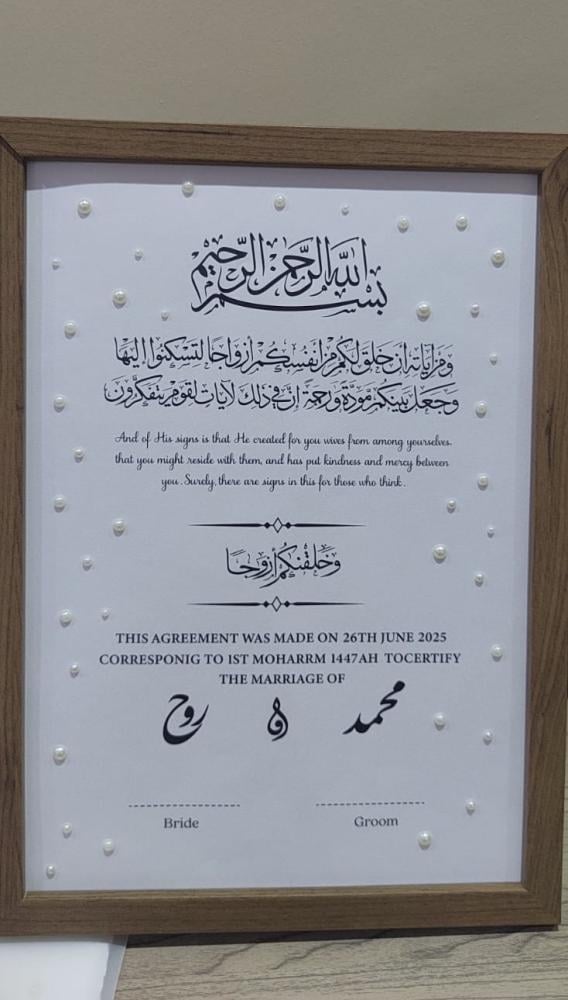 بسم الله الرحمن الرحيم
ومن آياته أن خلق لكم من أنفسكم أزواجا لتسكنوا إليها
وجعل بينكم مودة ورحمة إن في ذلك لآيات لقوم يتفكرون
And of His signs is that He created for you wives from among yourselves.
that you might reside with them, and has put kindness and mercy between
you. Surely, there are signs in this for those who think.
وخلقنكم أزوجا
THIS AGREEMENT WAS MADE ON 26TH JUNE 2025
CORRESPONIG TO 1ST MOHARRM 1447AH TOCERTIFY
THE MARRIAGE OF
محمد & روح
Bride Groom